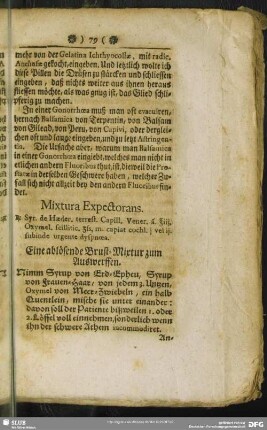 ( 79 )
mehr von der Gelatina Ichthyocollæ, mit radic.
Anchusæ gekocht, eingeben. Und letzlich wolte ich
diese Pillen die Drüsen zu stärcken und schliessen
eingeben, daß nichts weiter aus ihnen heraus
fliessen möchte, als was gnug ist, das Glied schlip-
pferig zu machen.
In einer Gonorrhœa muß man oft evacuiren,
hernach Balsamica von Terpentin, von Balsam
von Gilead, von Peru, von Capivi, oder derglei-
chen oft und lange eingeben, und zu letzt Adstringen-
tia. Die Ursache aber, warum man Balsamica
in einer Gonorrhœa eingiebt, welches man nicht in
etlichen andern Fluoribus thut, ist, dieweil die Pro-
statæ in derselben Geschwere haben, welcher Zu-
fall sich nicht allzeit bey den andern Fluoribus fin-
det.
Mixtura Expectorans.
Syr. de Hæder. terrest. Capill. Vener.
Oxymel. scillitic. m. capiat cochl. j vel ij.
subinde urgente dyspnœa.
Eine ablösende Brust-Mixtur zum
Auswerffen.
Nimm Syrup von Erd-Epheu, Syrup
von Frauen-Haar, von jedem 2. Untzen,
Oxymel von Meer-Zwiebeln, ein halb
Quentlein, mische sie unter einander:
davon soll der Patiente bißweilen 1. oder
2. Löffel voll einnehmen, sonderlich wenn
ihn der schwere Athem incommodiret.
An-
SLUB
DFG